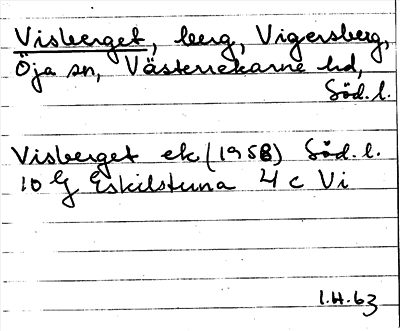 Visberget, berg, Vigersberg,
Öja sn, Västerrekarne hd,
Söd.l.
Visberget ek (1958) Söd.l.
10 G Eskilstuna 4 c Vi
I.H.63